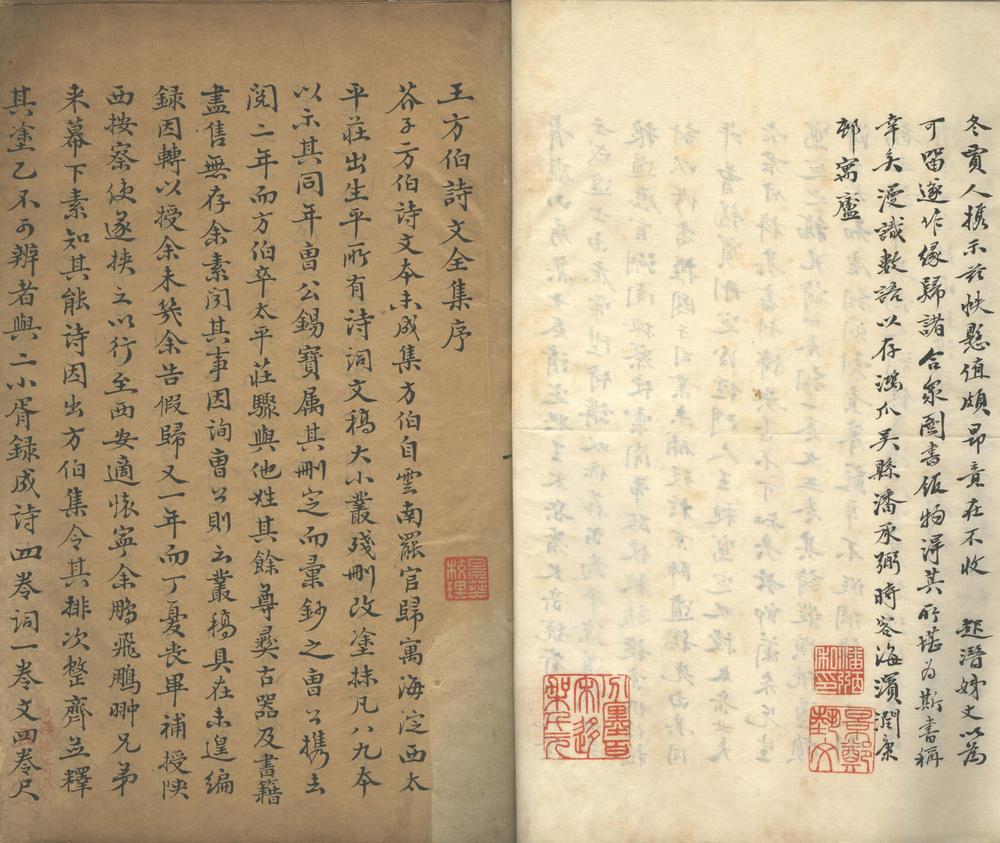 冬賈人携示玆帙懸值頗昂竟在不收 起潛姊丈以爲
可留遂作緣歸諸合衆圖書館物得其所堪爲斯書稱
幸矣漫識數語以存鴻爪吳縣潘承弼時客海濱潤康
邨寓廬
王方伯詩文全集序
芥子方伯詩文本未成集方伯自雲南罷官歸寓海淀西太
平莊出生平所有詩詞文稿大小叢殘刪改塗抹凡八九本
以示其同年曹公錫寶属其刪定而彙鈔之曹公攜去
閱二年而方伯卒太平莊驟與他姓其餘尊彝古器及書籍
盡售無存余素聞其事因詢曹公則云叢稿具在未遑編
録因轉以授余未幾余告假歸又一年而丁憂喪畢補授陝
西按察使遂挾之以行至西安適懷寧余鵬飛鵬翀兄弟
来幕下素知其能詩因出方伯集令其排次整齊並釋
其塗乙不可辨者與二小胥録成詩四卷詞一卷文四卷尺